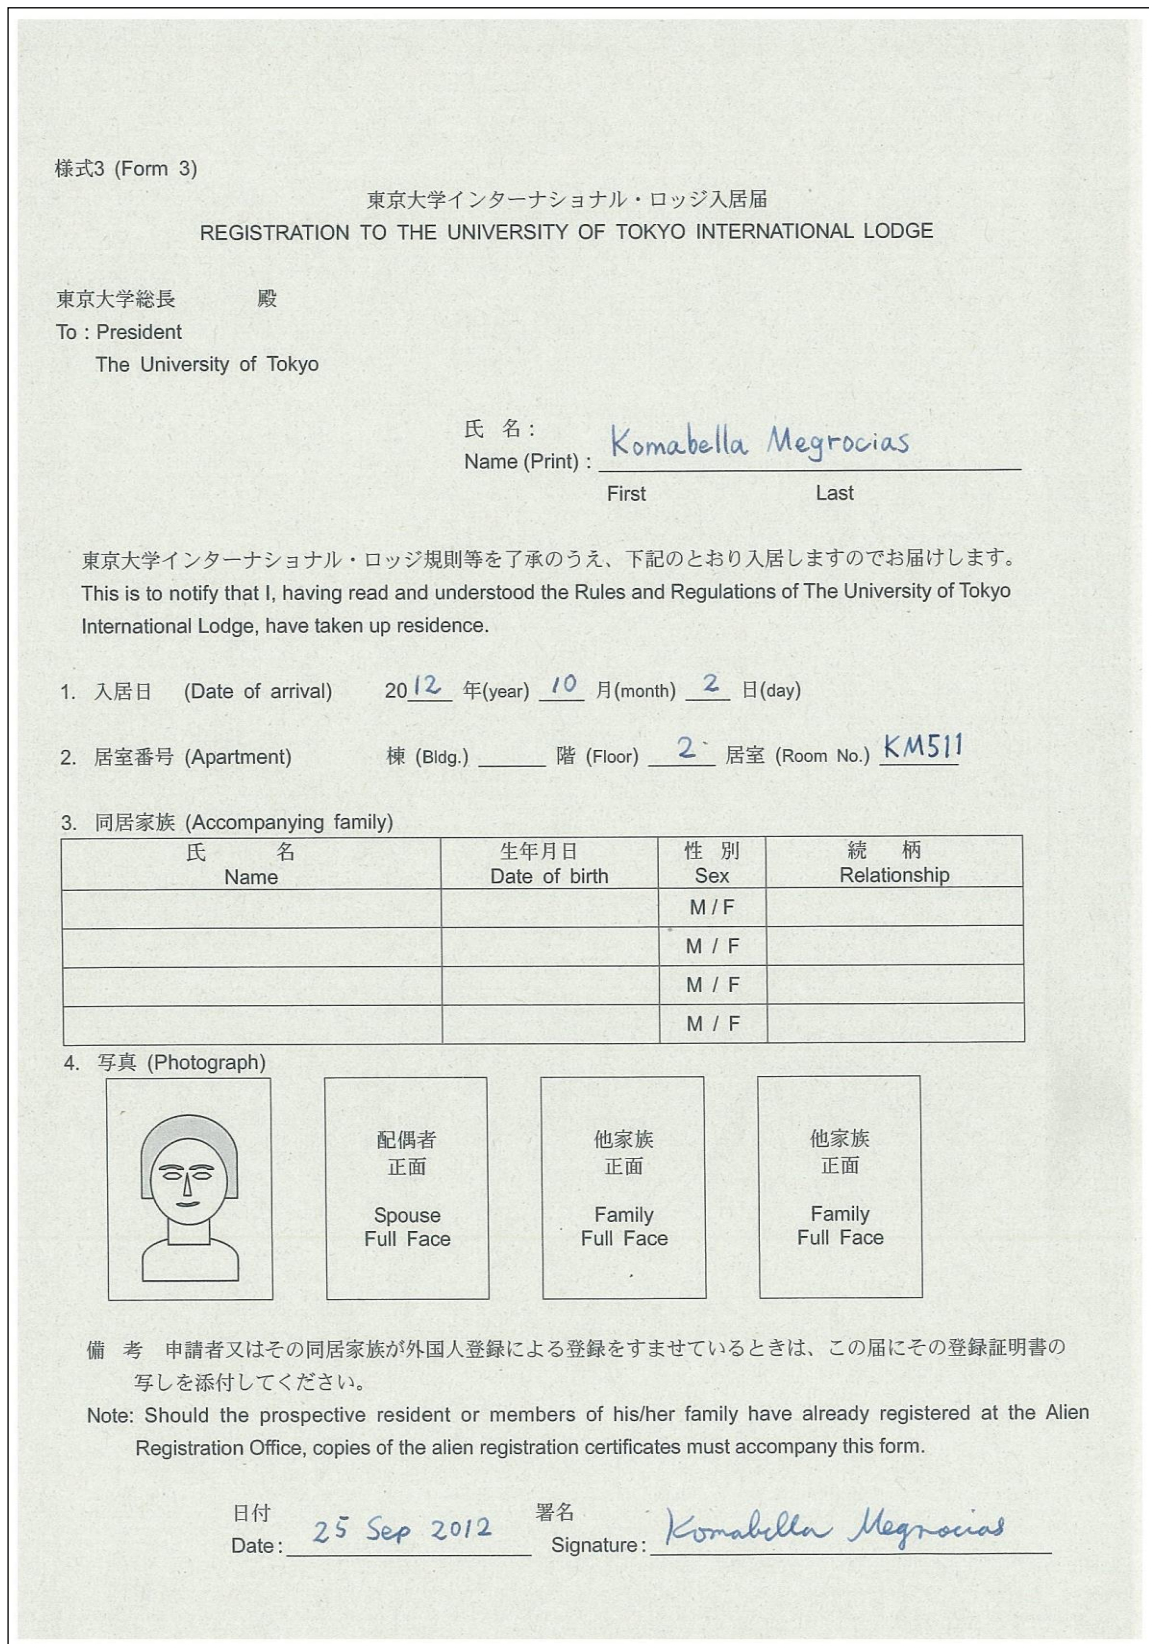 様式3 (Form 3)
東京大学インターナショナル・ロッジ入居届
REGISTRATION TO THE UNIVERSITY OF TOKYO INTERNATIONAL LODGE
東京大学総長 殿
To : President
The University of Tokyo
氏 名 :
Name (Print) : Komabella Megrocias
First Last
東京大学インターナショナル・ロッジ規則等を了承のうえ、下記のとおり入居しますのでお届けします。
This is to notify that I, having read and understood the Rules and Regulations of The University of Tokyo
International Lodge, have taken up residence.
1. 入居日 (Date of arrival) 2012 年(year) 10 月(month) 2 日(day)
2. 居室番号 (Apartment) 棟 (Bldg.) 階 (Floor) 2 居室 (Room No.) KM511
3. 同居家族 (Accompanying family)
氏 名 生年月日 性 別 続 柄
Name Date of birth Sex Relationship
M / F
M / F
M / F
M / F
4. 写真 (Photograph)
配偶者 他家族 他家族
正面 正面 正面
Spouse Family Family
Full Face Full Face Full Face
備 考 申請者又はその同居家族が外国人登録による登録をすませているときは、この届にその登録証明書の
写しを添付してください。
Note: Should the prospective resident or members of his/her family have already registered at the Alien
Registration Office, copies of the alien registration certificates must accompany this form.
日付 署名
Date : 25 Sep 2012 Signature : Komabella Megrocias